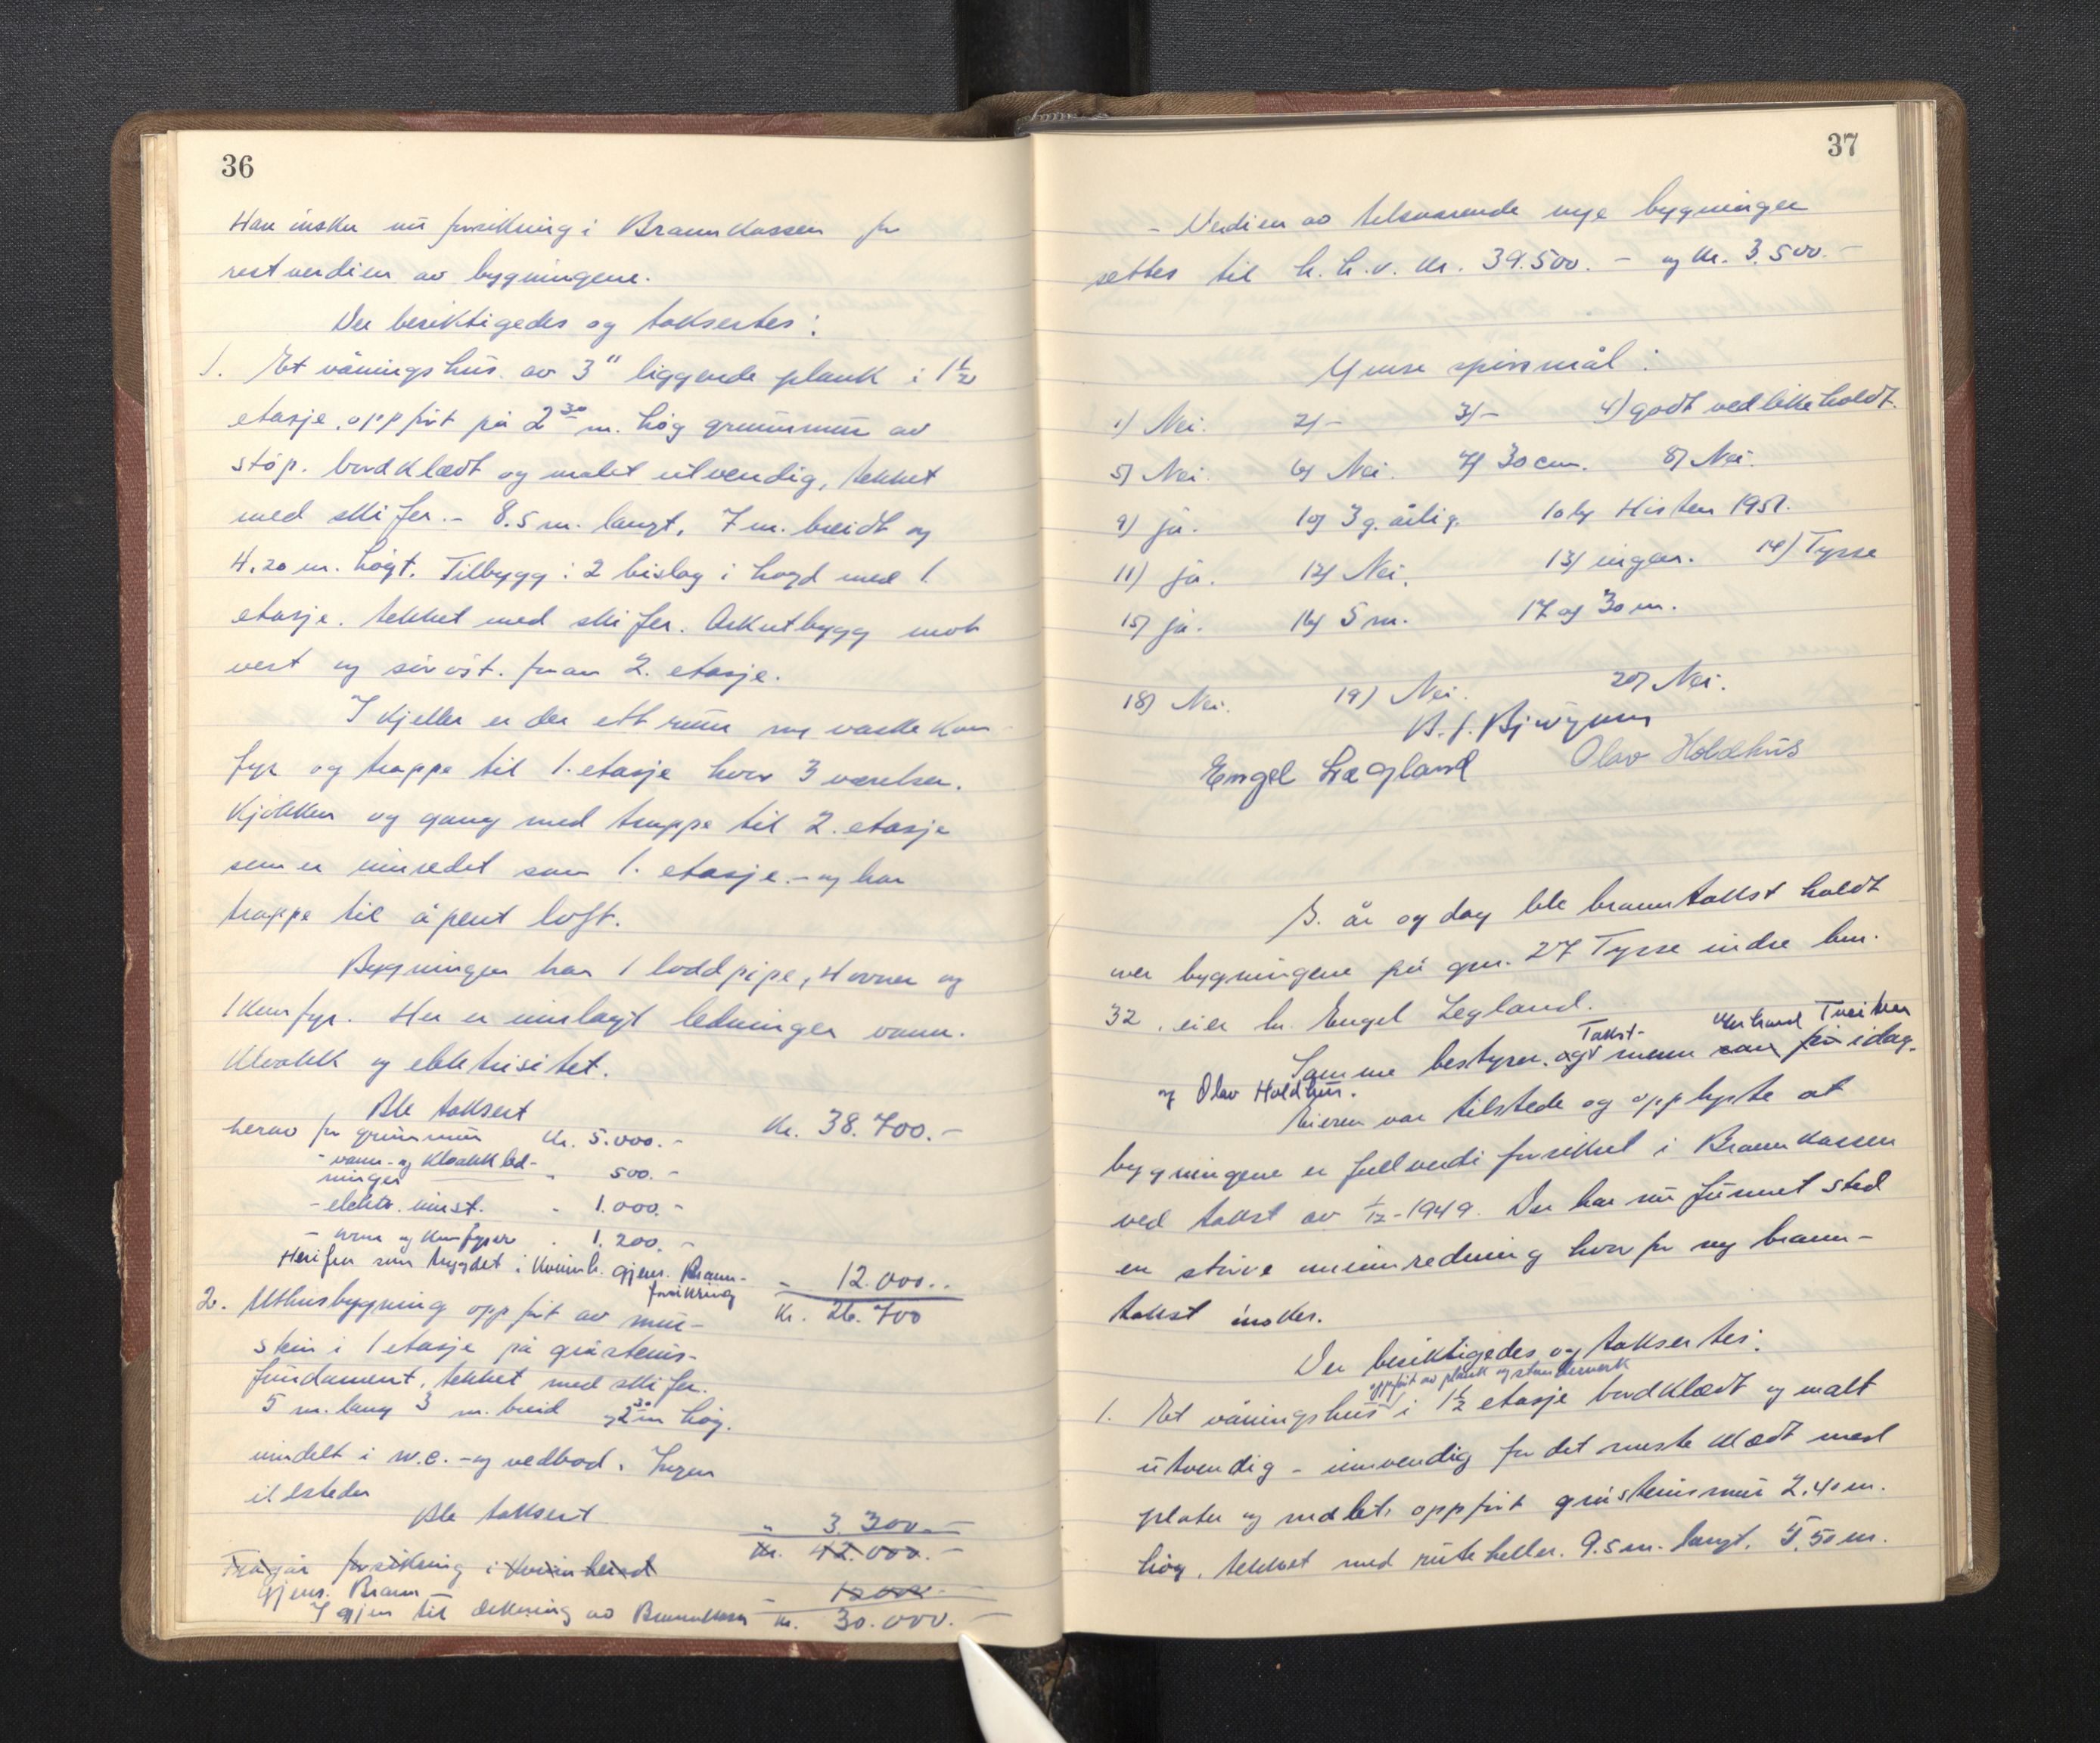 36
Han ønsker nu forsikring i Brannkassen for
restverdien av bygningene.
Der besiktigedes og taksertes:
1. Et våningshus av 3" liggende plank i 1½
etasje, oppført på 2³⁰ m. høg grunnmur av
støp. bordklædt og malet utvendig, tekket
med skifer. - 8.5 m. langt, 7 m. breidt og
4.20 m. høgt. Tilbygg: 2 bislag i høgd med 1.
etasje. tekket med skifer. Arkutbygg mot
vest og sørøst. foran 2. etasje.
I kjeller er der ett rum m/ vaskekom
fyr og trappe til 1. etasje hvor 3 værelser.
Kjøkken og gang med trappe til 2. etasje
som er innredet som 1. etasje. - og har
trappe til åpent loft.
Bygningen har 1 loddpipe, 4 ovner og
1 komfyr. Her er innlagt ledninger vann.
Kloakk og elektrisitet.
Ble taksert
herav for grunnmur Kr. 5.000.- Kr. 38.700.-
- vann- og kloakkled-
ninger - 500.-
- elektr. innst. - 1.000.-
- ovne og komfyrer - 1.200.-
Herifra som trygdet i Kvinnh. gjens. Brann-
forsikring - 12.000..
Kr. 26.700
2. Uthusbygning oppført av mur-
stein i 1 etasje på gråsteins-
fundament, tekket med skifer.
5 m. lang 3 m. breid og 2³⁰ m høg.
inndelt i w.c. - og vedbod. Ingen
ildsteder
Ble taksert " 3.300.-
Kr. 42.000.-
Fragår forsikring i Kvinnherad
gjens. Brann - 12000.-
Igjen til dekning av Brannkassen Kr. 30.000.-
37
- Verdien av tilsvarende nye bygninger
settes til h.h.v. Kr. 39.500.- og Kr. 3.500.-
Ymse spørsmål:
1) Nei. 2) - 3) - 4) godt vedlikeholdt.
5) Nei. 6) Nei. 7) 30 cm. 8) Nei.
9) ja. 10) 3 g. årlig. 10b) Høsten 1951.
11) ja. 12) Nei. 13) ingen. 14) Tysse
15) ja. 16) 5 m. 17 a) 30 m.
18) Nei. 19) Nei. 20) Nei.
Engel Lægland Olav Holdhus
S. år og dag ble branntakst holdt
over bygningene på gnr. 27 Tysse indre bnr.
32, eier hr. Engel Legland.
Samme bestyrer. og Takst- menn som før idag.
og Olav Holdhus.
Eieren var tilstede og opplyste at
bygningene er fullverdi forsikret i Brannkassen
ved takst av 1/12-1949. Der har nu funnet sted
en større ominnredning hvorfor ny brann-
takst ønskes.
Der besiktigedes og taksertes:
oppført av plank og stenderverk
1. Et våningshus i 1½ etasje bordklædt og malt
utvendig - innvendig for det meste klædt med
plater og malet, oppført gråsteinsmur 2.40 m.
høg, tekket med ruteheller. 9.5 m. langt, 5.50 m.